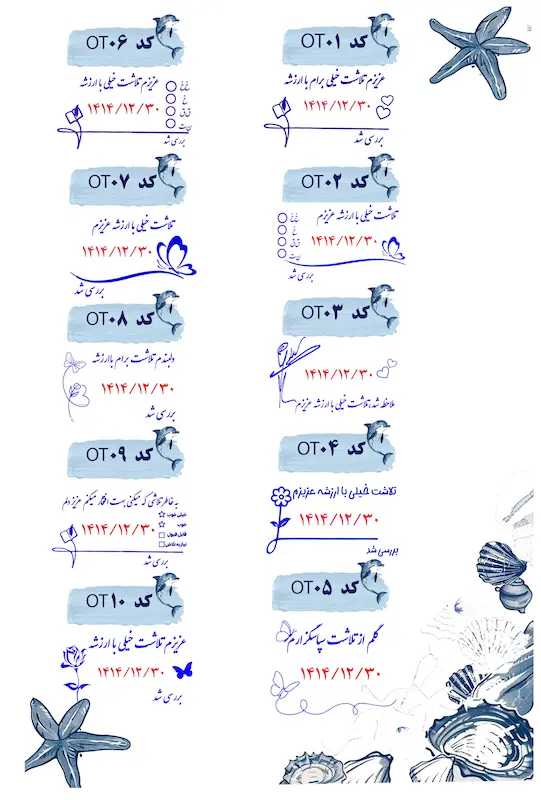 کد OT۰۱
عزیزم تلاشت خیلی برام با ارزشه
۱۴۱۴/۱۲/۳۰
بررسی شد
کد OT۰۲
تلاشت خیلی با ارزشه عزیزم
خ خ
خ
ق ق
ن ت
۱۴۱۴/۱۲/۳۰
بررسی شد
کد OT۰۳
۱۴۱۴/۱۲/۳۰
ملاحظه شد، تلاشت خیلی با ارزشه عزیزم
کد OT۰۴
تلاشت خیلی با ارزشه عزیزم
۱۴۱۴/۱۲/۳۰
بررسی شد
کد OT۰۵
گلم از تلاشت سپاسگزارم
۱۴۱۴/۱۲/۳۰
کد OT۰۶
عزیزم تلاشت خیلی با ارزشه
خ خ
خ
ق ق
ن ت
۱۴۱۴/۱۲/۳۰
بررسی شد
کد OT۰۷
تلاشت خیلی با ارزشه عزیزم
۱۴۱۴/۱۲/۳۰
بررسی شد
کد OT۰۸
دلبندم تلاشت برام با ارزشه
۱۴۱۴/۱۲/۳۰
بررسی شد
کد OT۰۹
به خاطر تلاشی که میکنی بهت افتخار میکنم عزیز دلم
خیلی خوب
خوب
قابل قبول
نیاز به تلاش
۱۴۱۴/۱۲/۳۰
بررسی شد
کد OT۱۰
عزیزم تلاشت خیلی با ارزشه
۱۴۱۴/۱۲/۳۰
بررسی شد